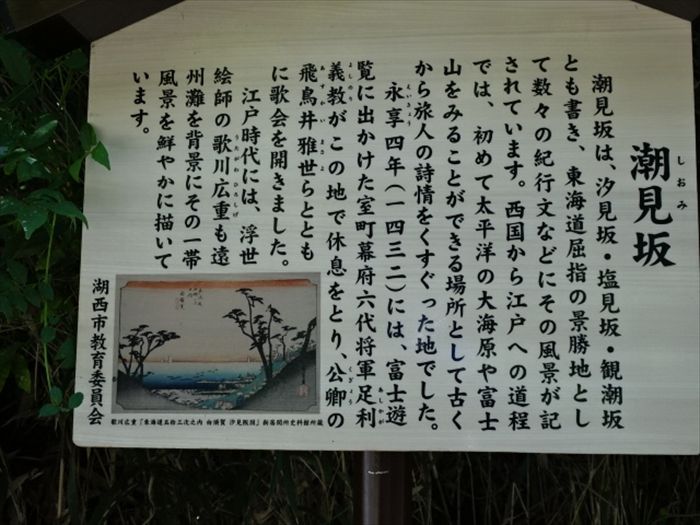 潮見坂
しおみ
潮見坂は、汐見坂・塩見坂・観潮坂
とも書き、東海道屈指の景勝地とし
て数々の紀行文などにその風景が記
されています。西国から江戸への道程
では、初めて太平洋の大海原や富士
山をみることができる場所として古く
から旅人の詩情をくすぐった地でした。
永享四年(一四三二)には、富士遊
えいきょう
覧に出かけた室町幕府六代将軍足利
あしかが
義教がこの地で休息をとり、公卿の
よしのり
くぎょう
飛鳥井雅世らととも
あすかい
まさよ
に歌会を開きました。
江戸時代には、浮世
絵師の歌川広重も遠
うたがわひろしげ
州灘を背景にその一帯
風景を鮮やかに描いて
います。
湖西市教育委員会
歌川広重「東海道五拾三次之内 白須賀 汐見阪図」新居関所史料館所蔵